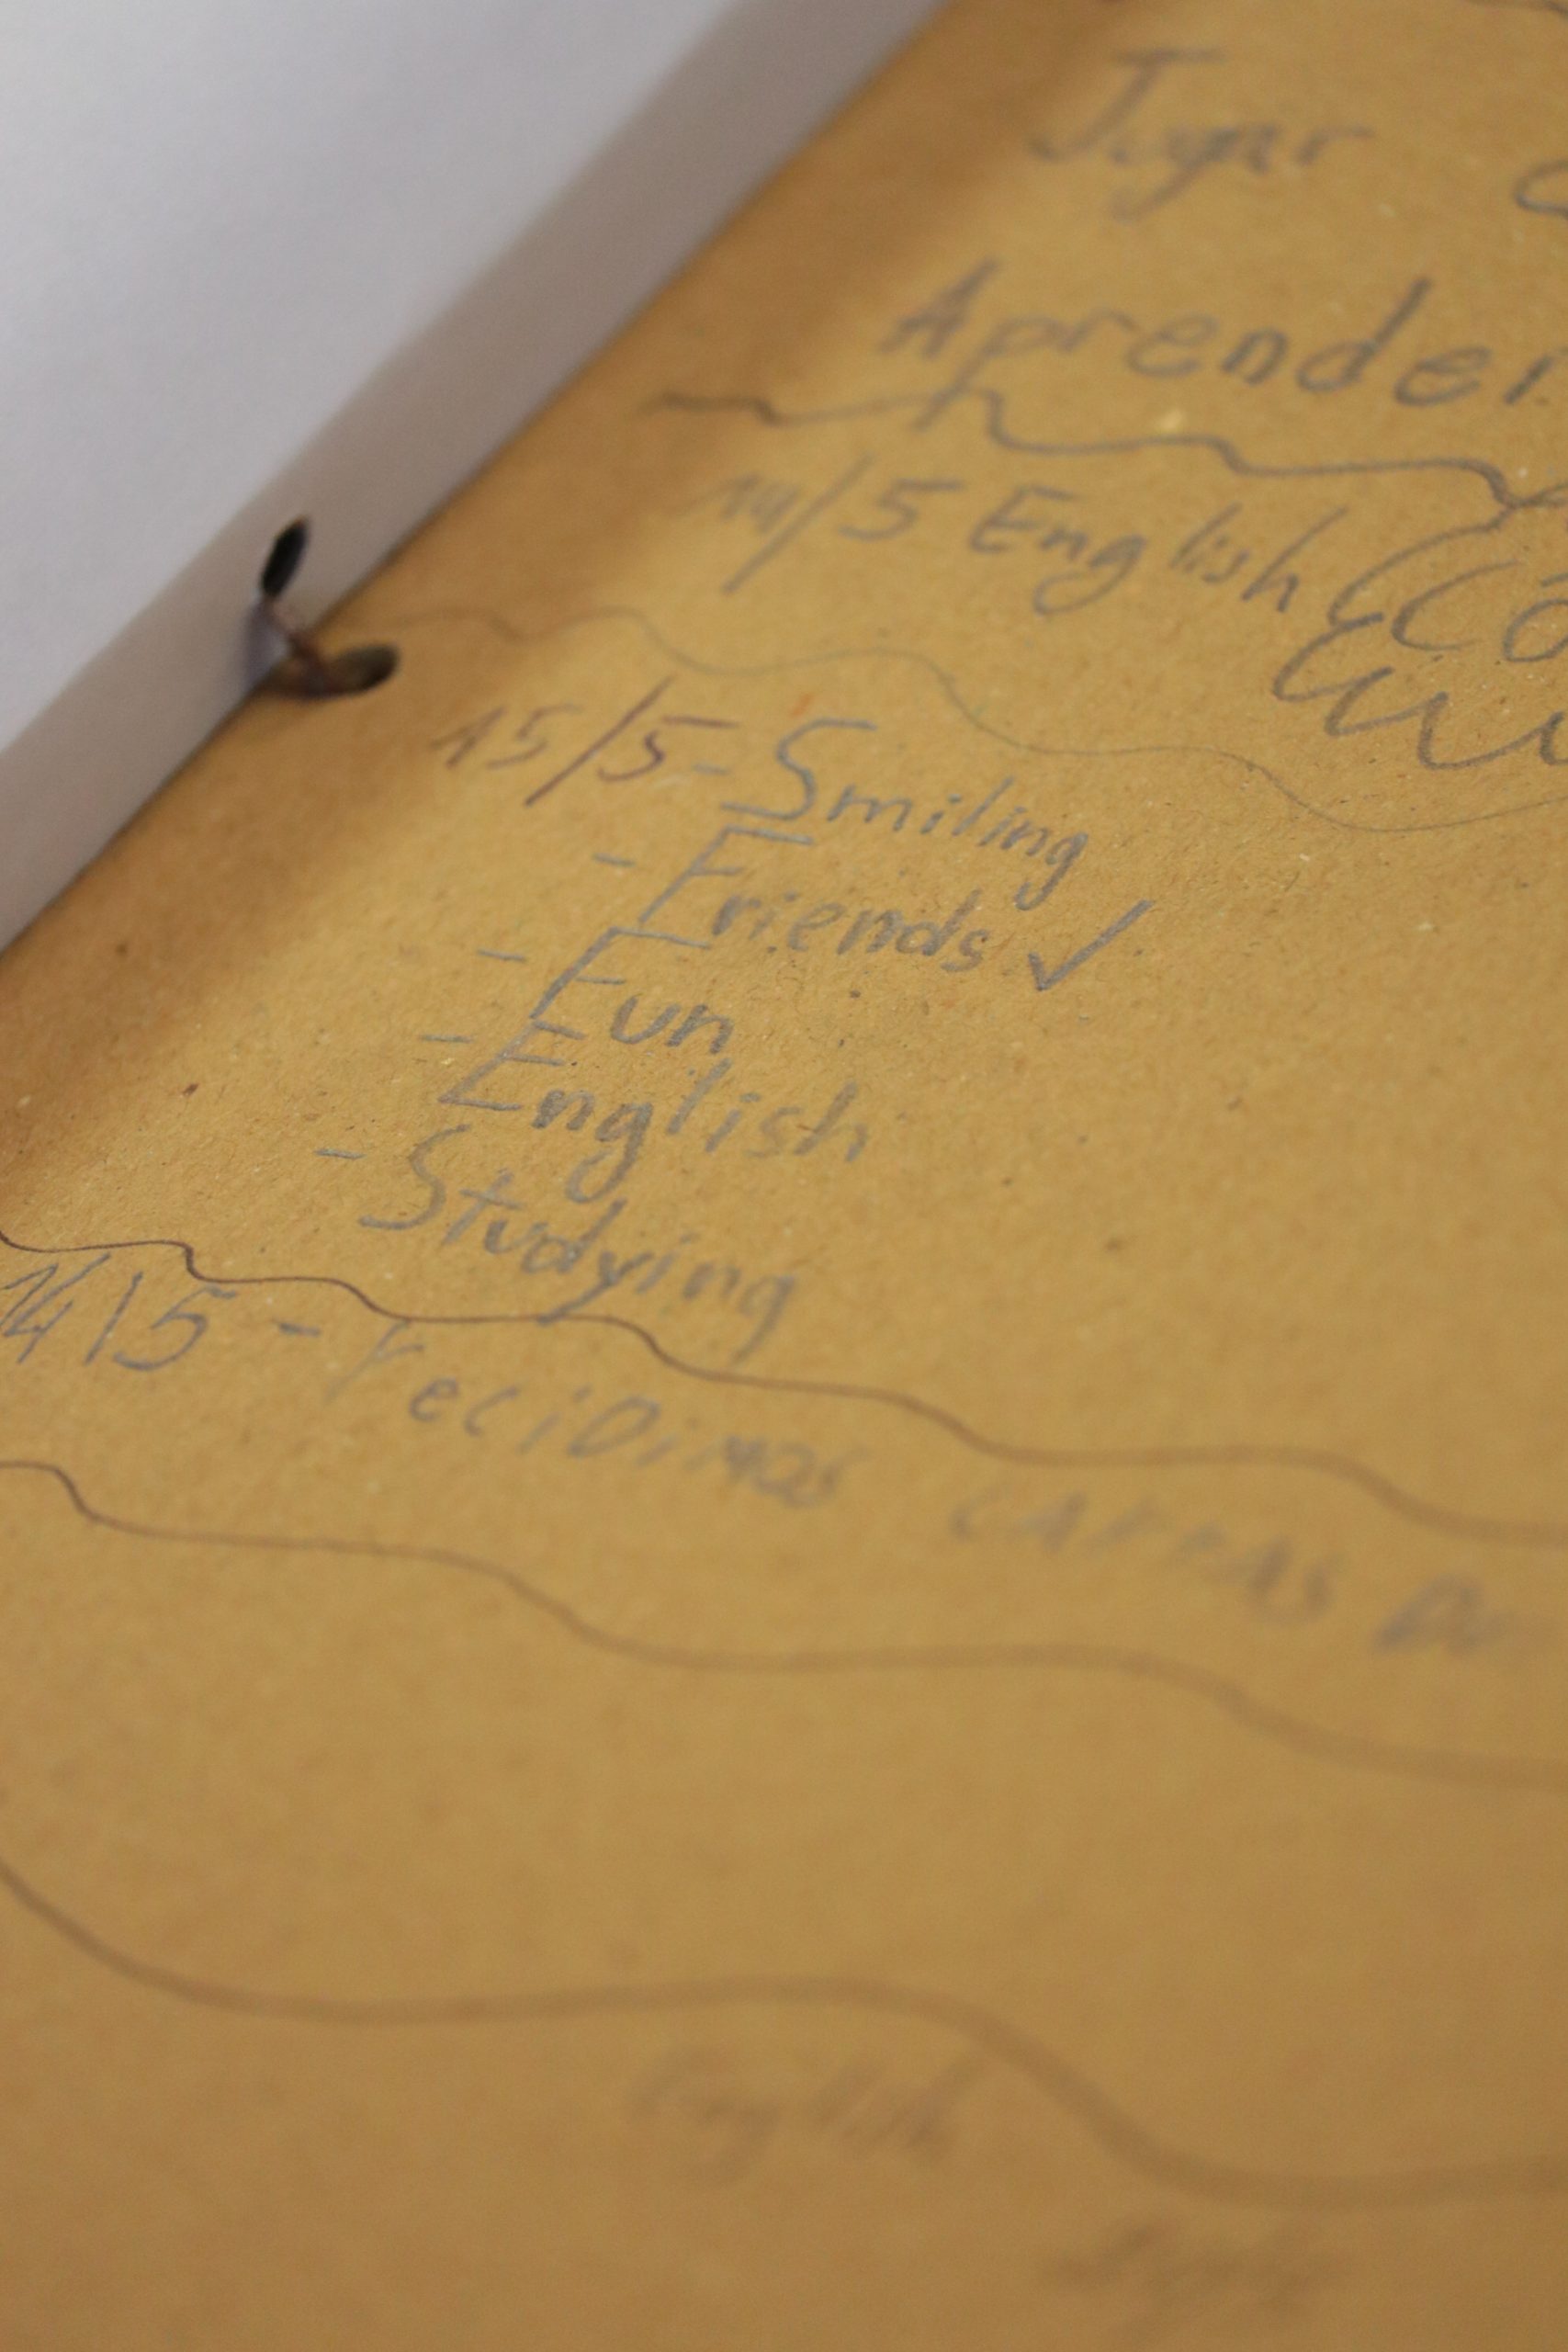 Jugar
Aprender
14/5 English
15/5 - Smiling
- Friends ✓
- Fun
- English
- Studying
14\5 - reciDimos cartas
English